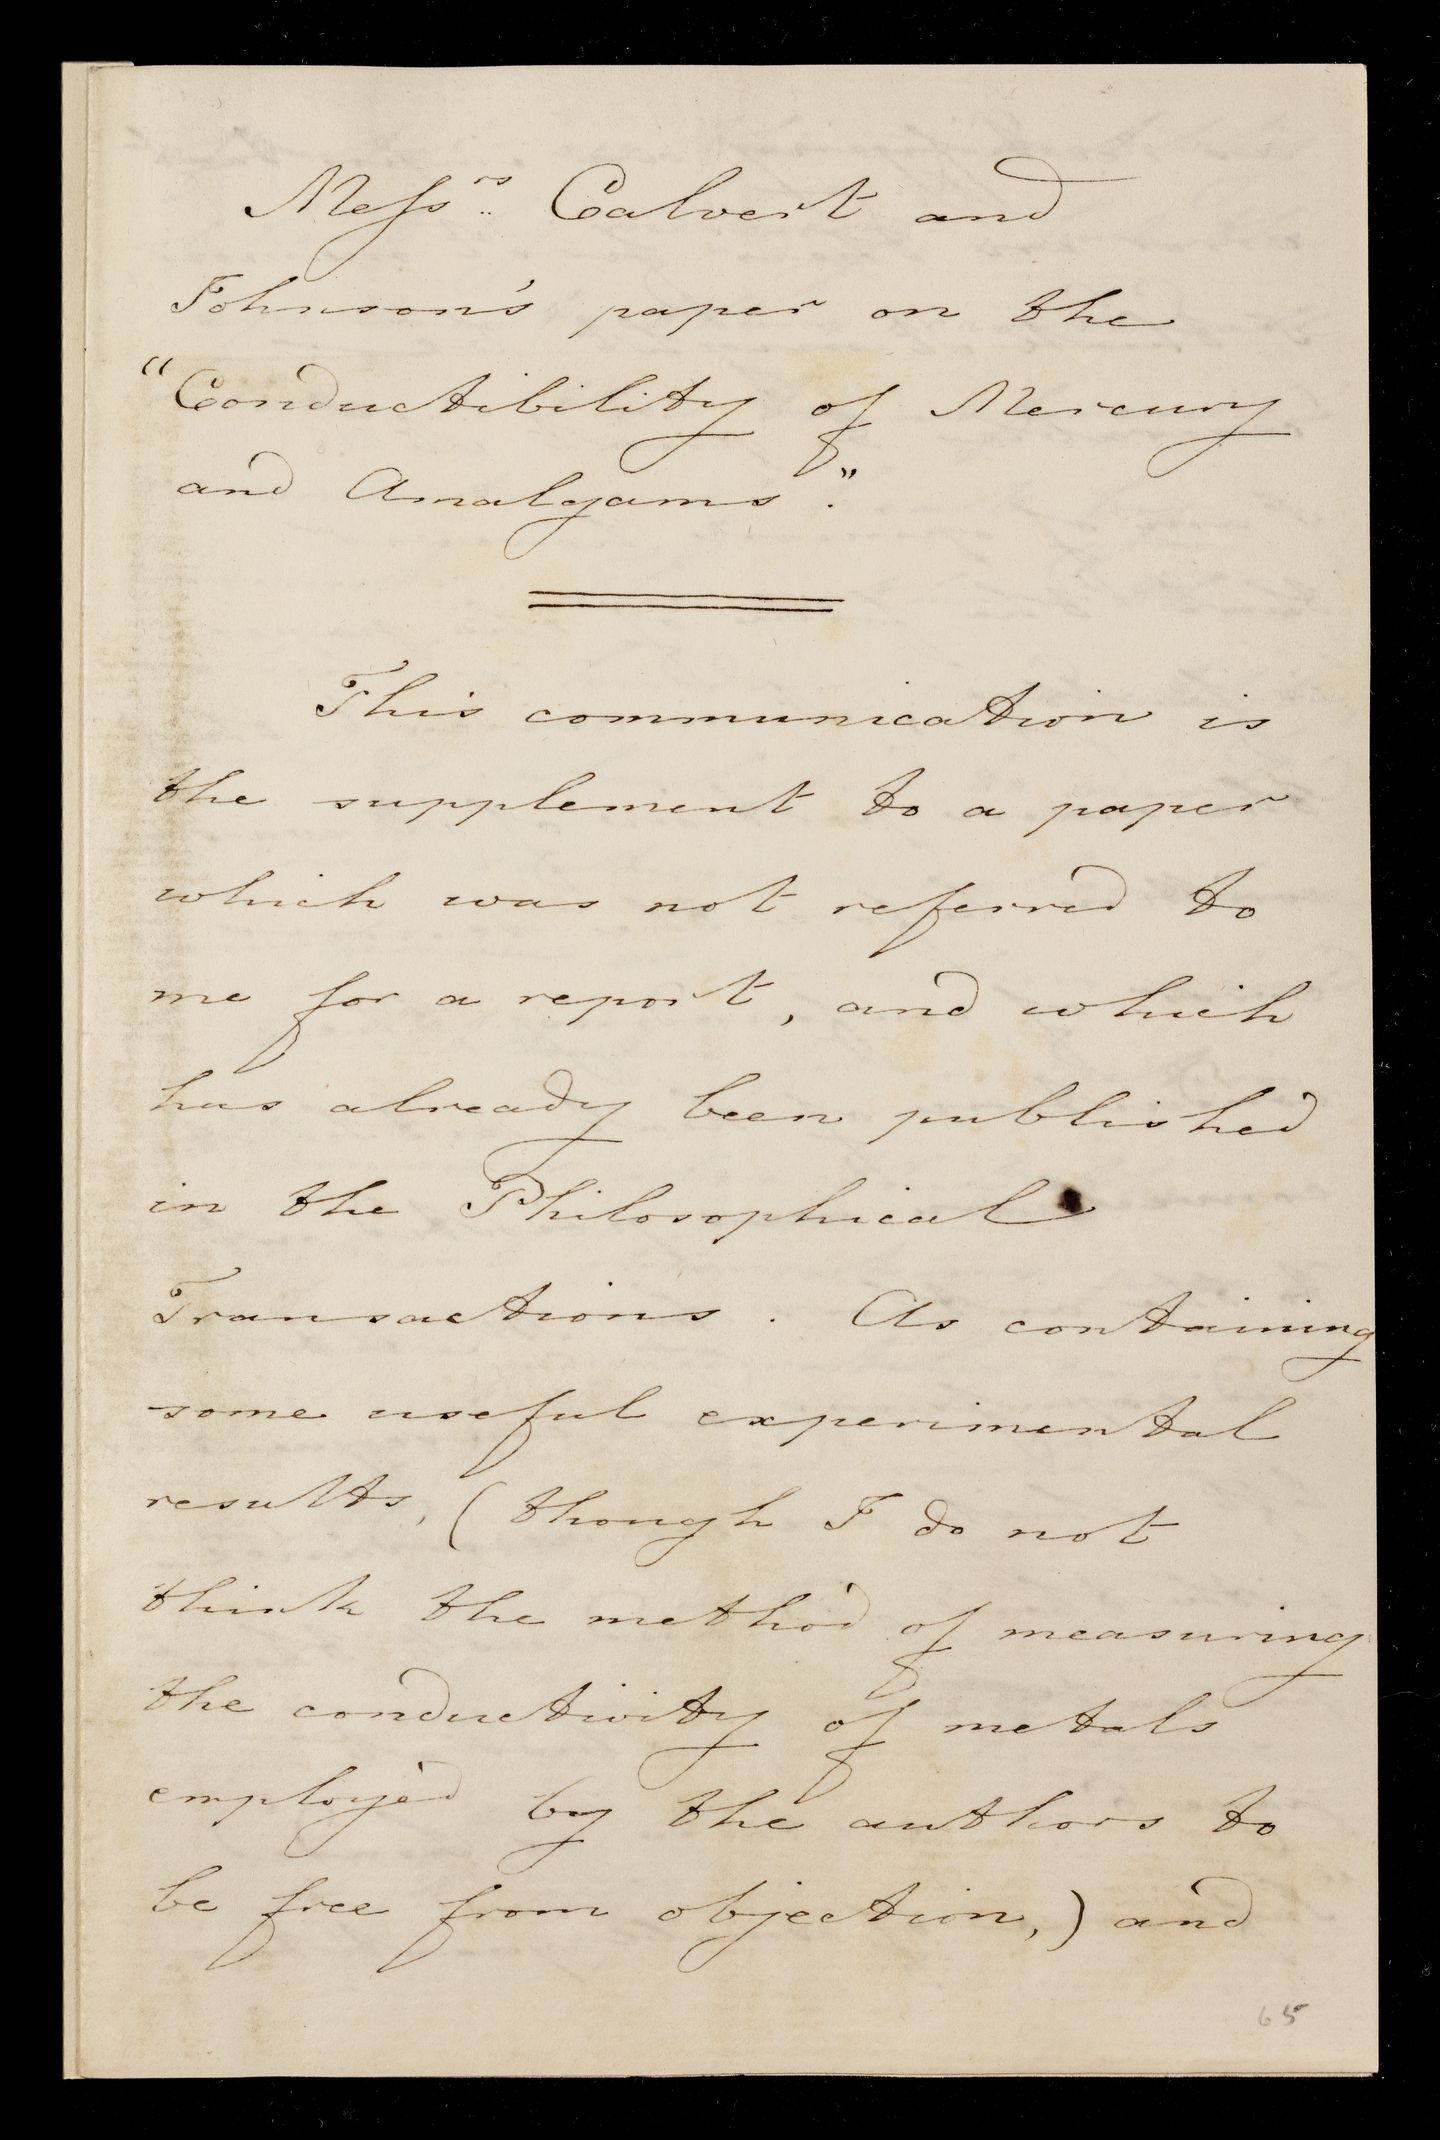 Messrs. Calvert and
Johnson's paper on the
"Conductibility of Mercury
and Amalgams".
This communication is
the supplement to a paper
which was not referred to
me for a report, and which
has already been published
in the Philosophical
Transactions. As containing
some useful experimental
results, (though I do not
think the method of measuring
the conductivity of metals
employed by the authors to
be free from objection,) and
65